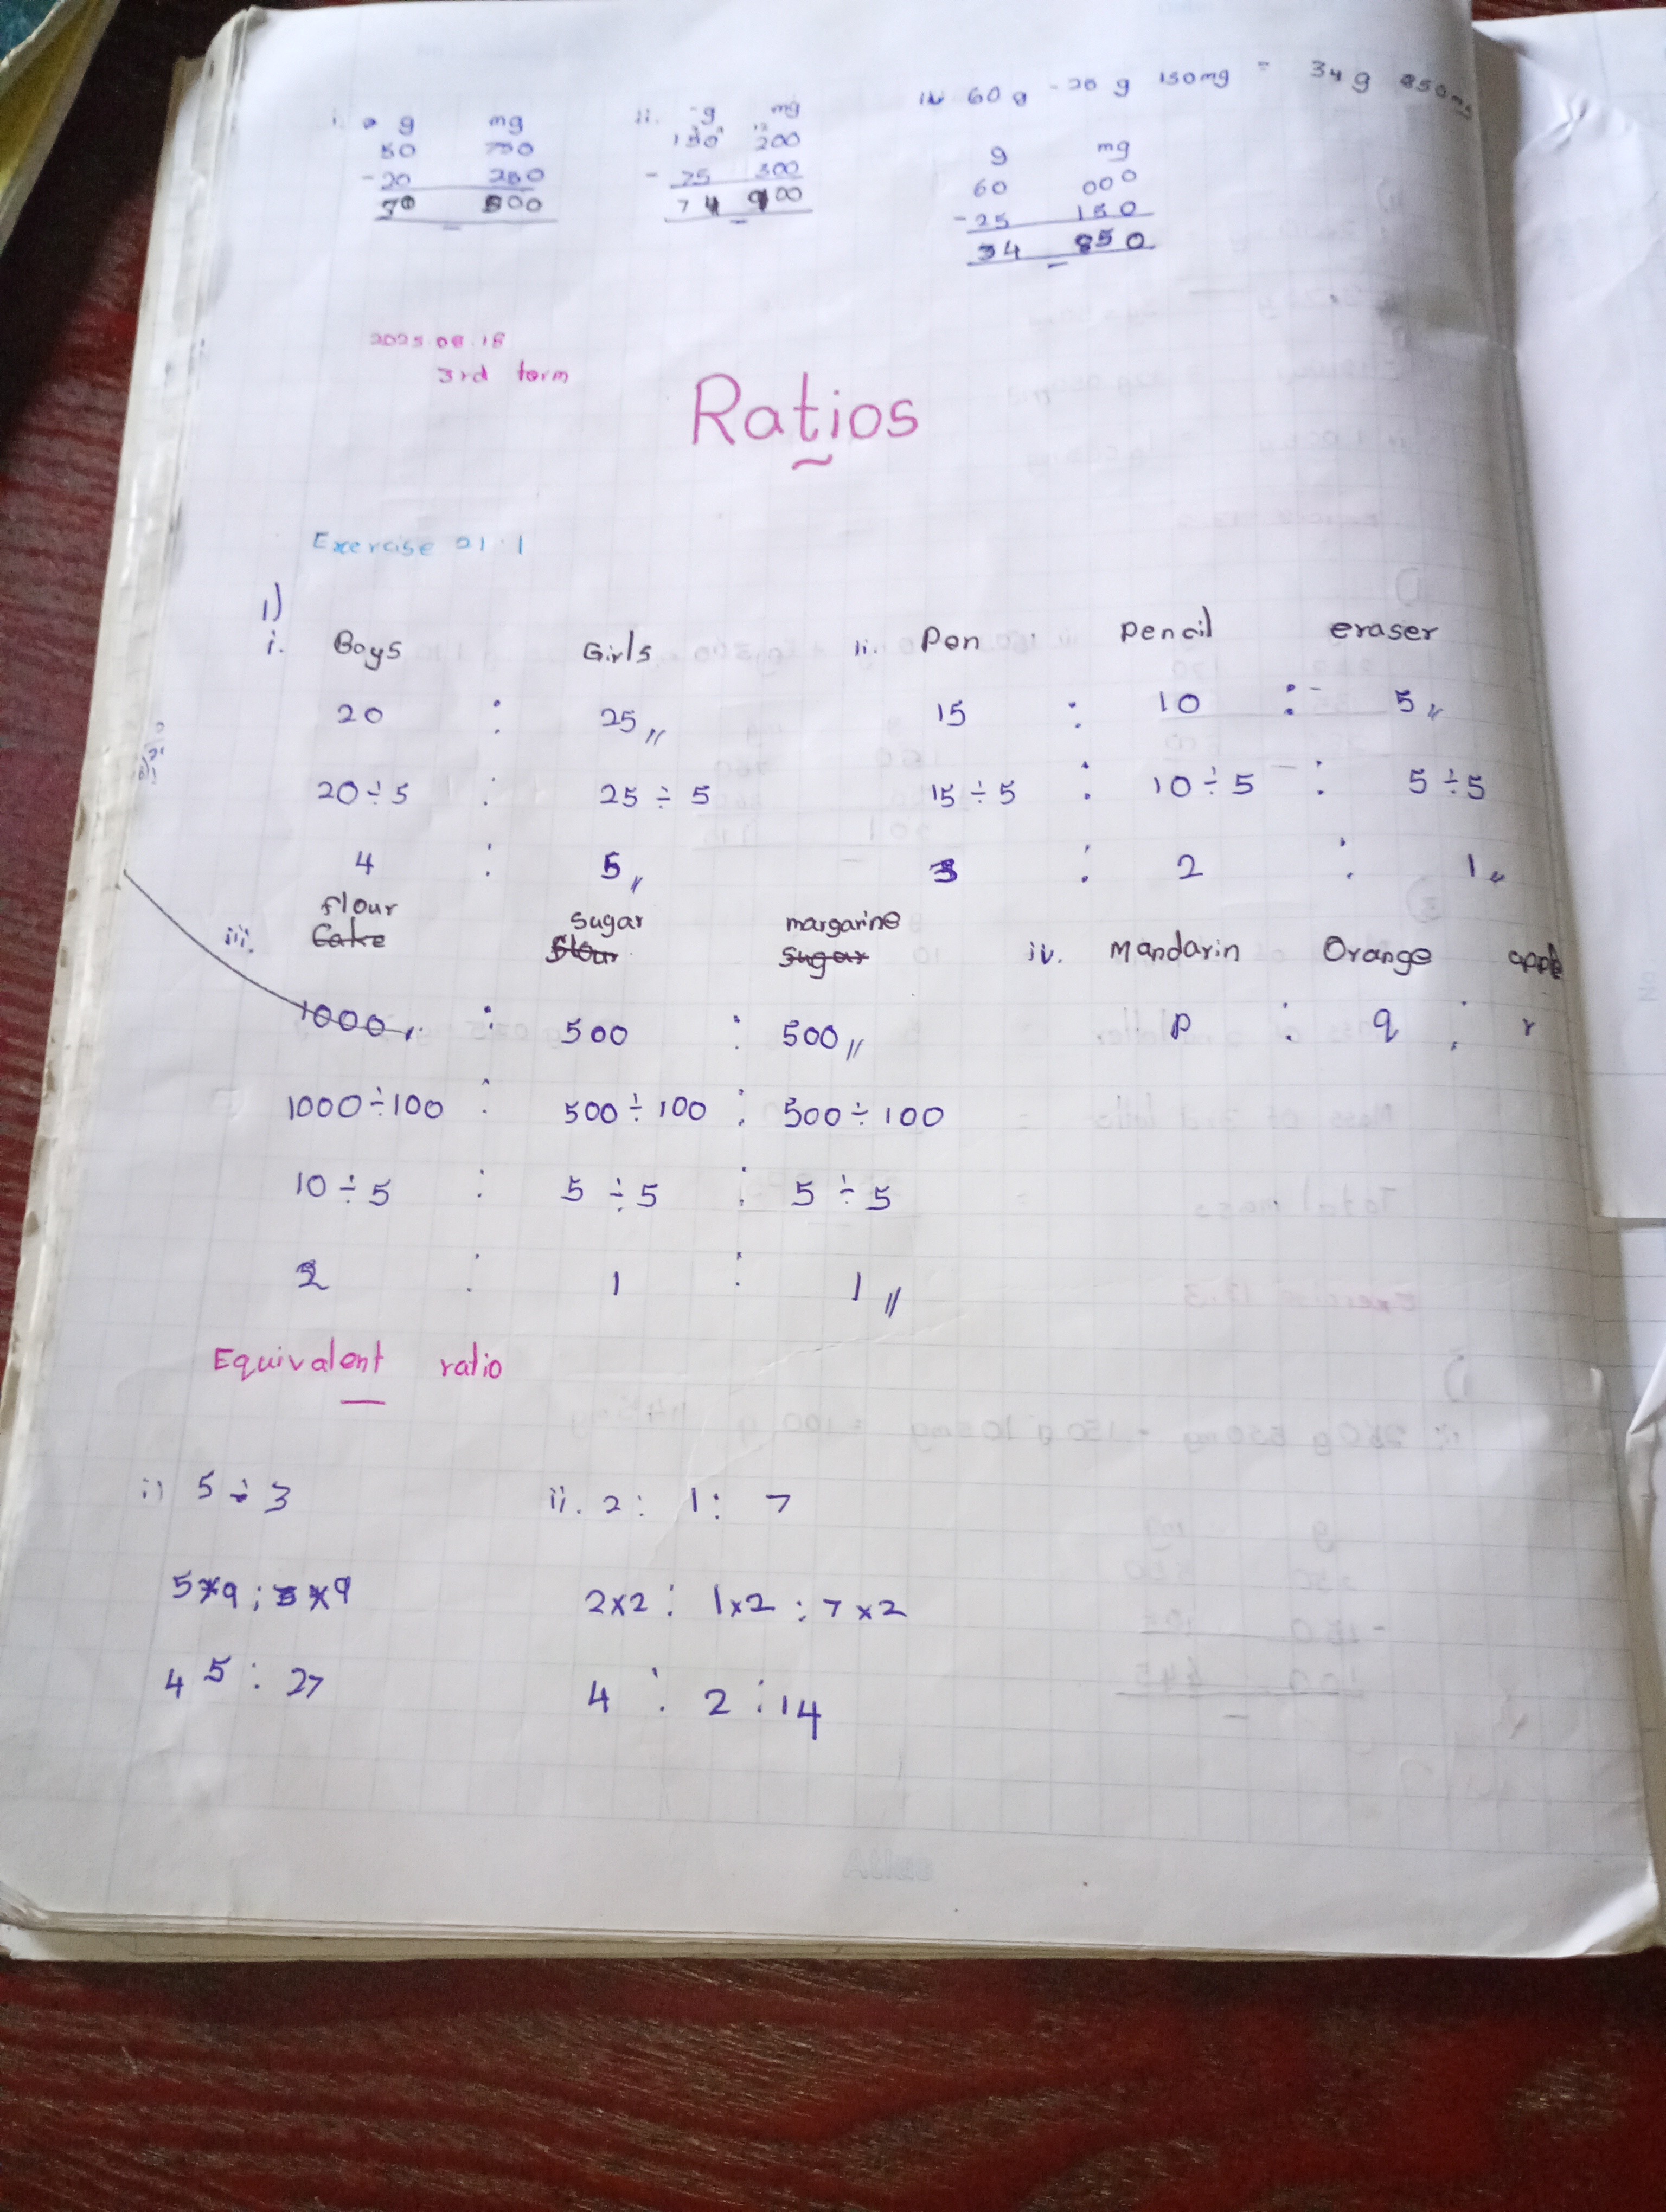 iv 60 g - 20 g 150mg = 34g 850mg
i. g mg
50 750
- 20 250
30 500
ii. g mg
150 200
- 75 300
74 900
g mg
60 000
- 25 150
34 850
2025.08.18
3rd term
Ratios
Exercise 21.1
1)
i. Boys Girls
20 : 25
20÷5 : 25÷5
4 : 5
ii. Pen Pencil eraser
15 : 10 : 5
15÷5 : 10÷5 : 5÷5
3 : 2 : 1
flour sugar margarine
iii. Cake Flour Sugar
1000 : 500 : 500
1000÷100 : 500÷100 : 500÷100
10÷5 : 5÷5 : 5÷5
2 : 1 : 1
iv. Mandarin Orange apple
p : q : r
Equivalent ratio
i) 5÷3
5×9 : 3×9
45 : 27
ii. 2 : 1 : 7
2×2 : 1×2 : 7×2
4 : 2 : 14